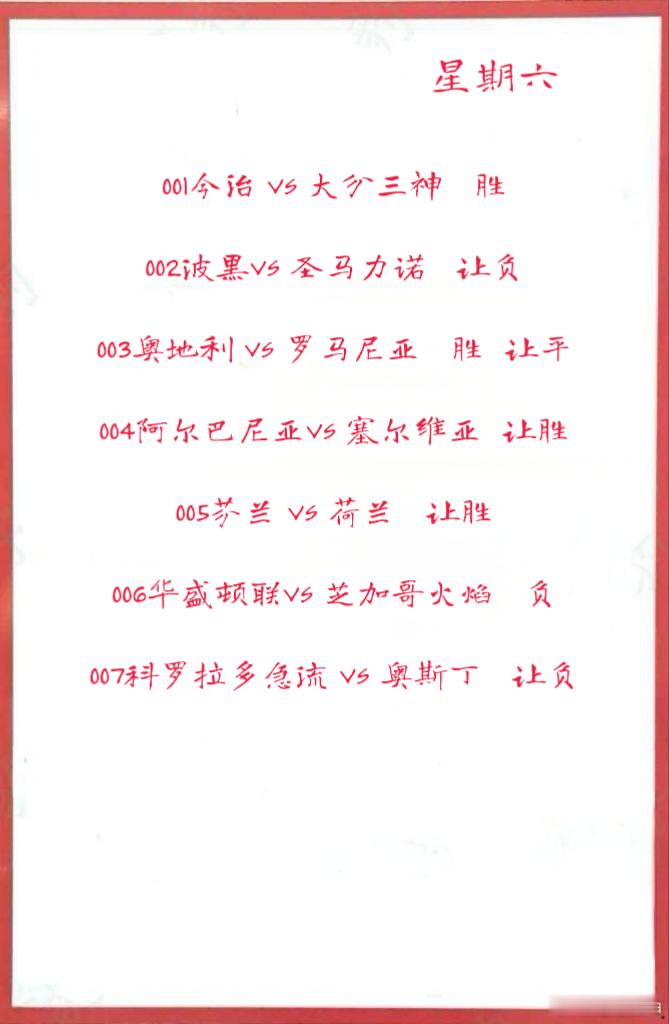 星期六
001今治 vs 大分三神 胜
002波黑vs 圣马力诺 让负
003奥地利 vs 罗马尼亚 胜 让平
004阿尔巴尼亚vs 塞尔维亚 让胜
005芬兰 vs 荷兰 让胜
006华盛顿联vs 芝加哥火焰 负
007科罗拉多急流 vs 奥斯丁 让负